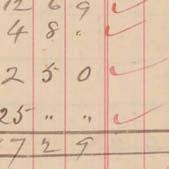 12 6 9 ✓
4 8 " ✓
2 5 0 ✓
25 " " ✓
7 2 9